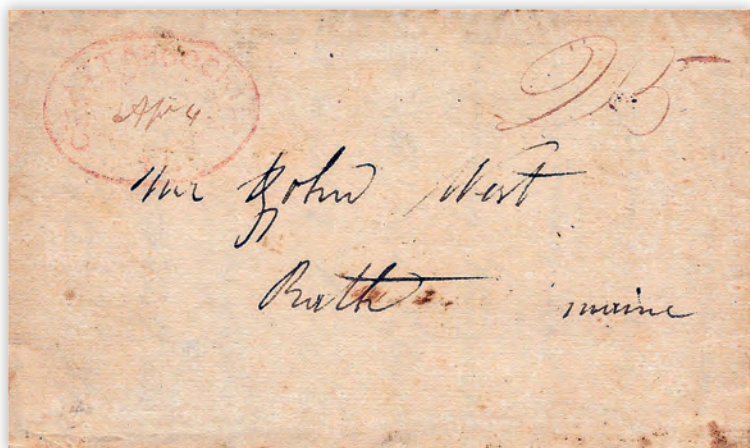 CHATTAHOOCHEE
Apr 4
25
Mr John West
Bath maine